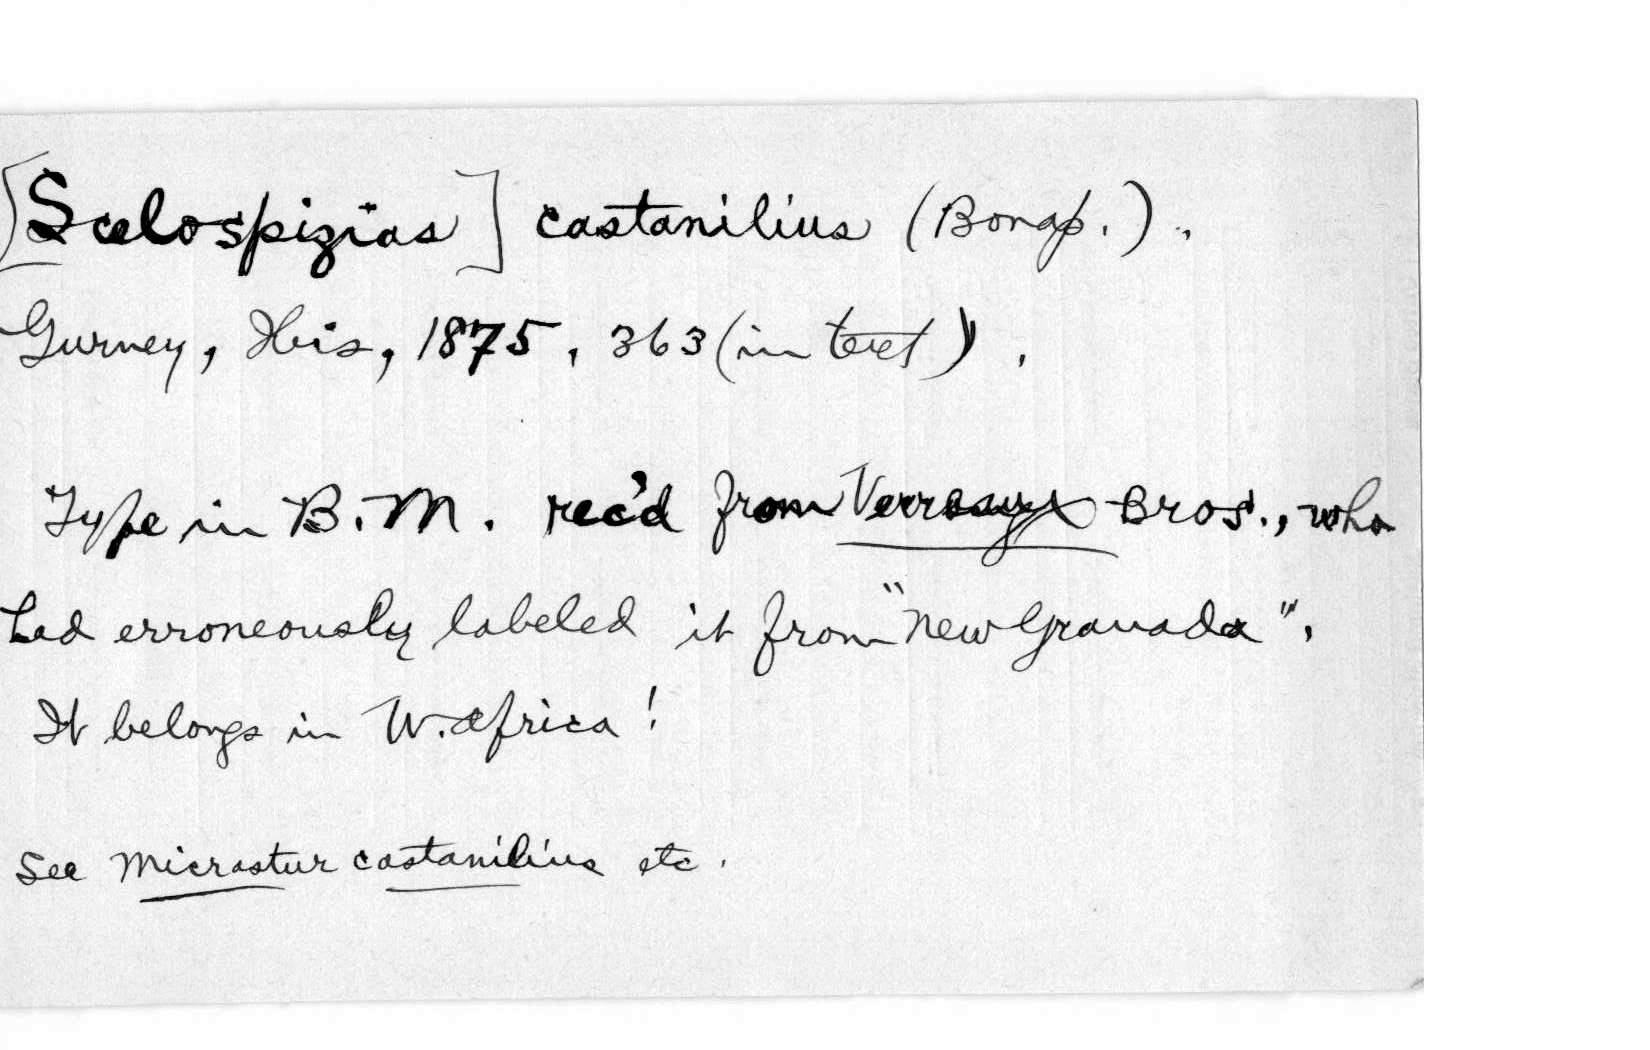 [Scelospizias] castanilius (Bonap.).
Gurney, Ibis, 1875, 363 (in text).
Type in B.M. rec'd from Verreaux Bros., who
had erroneously labeled it from "New Granada".
It belongs in W. Africa!
See Micrastur castanilius etc.